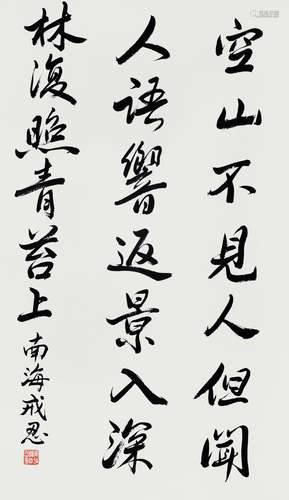 空山不見人但聞
人語響返景入深
林復照青苔上
南海戒忍